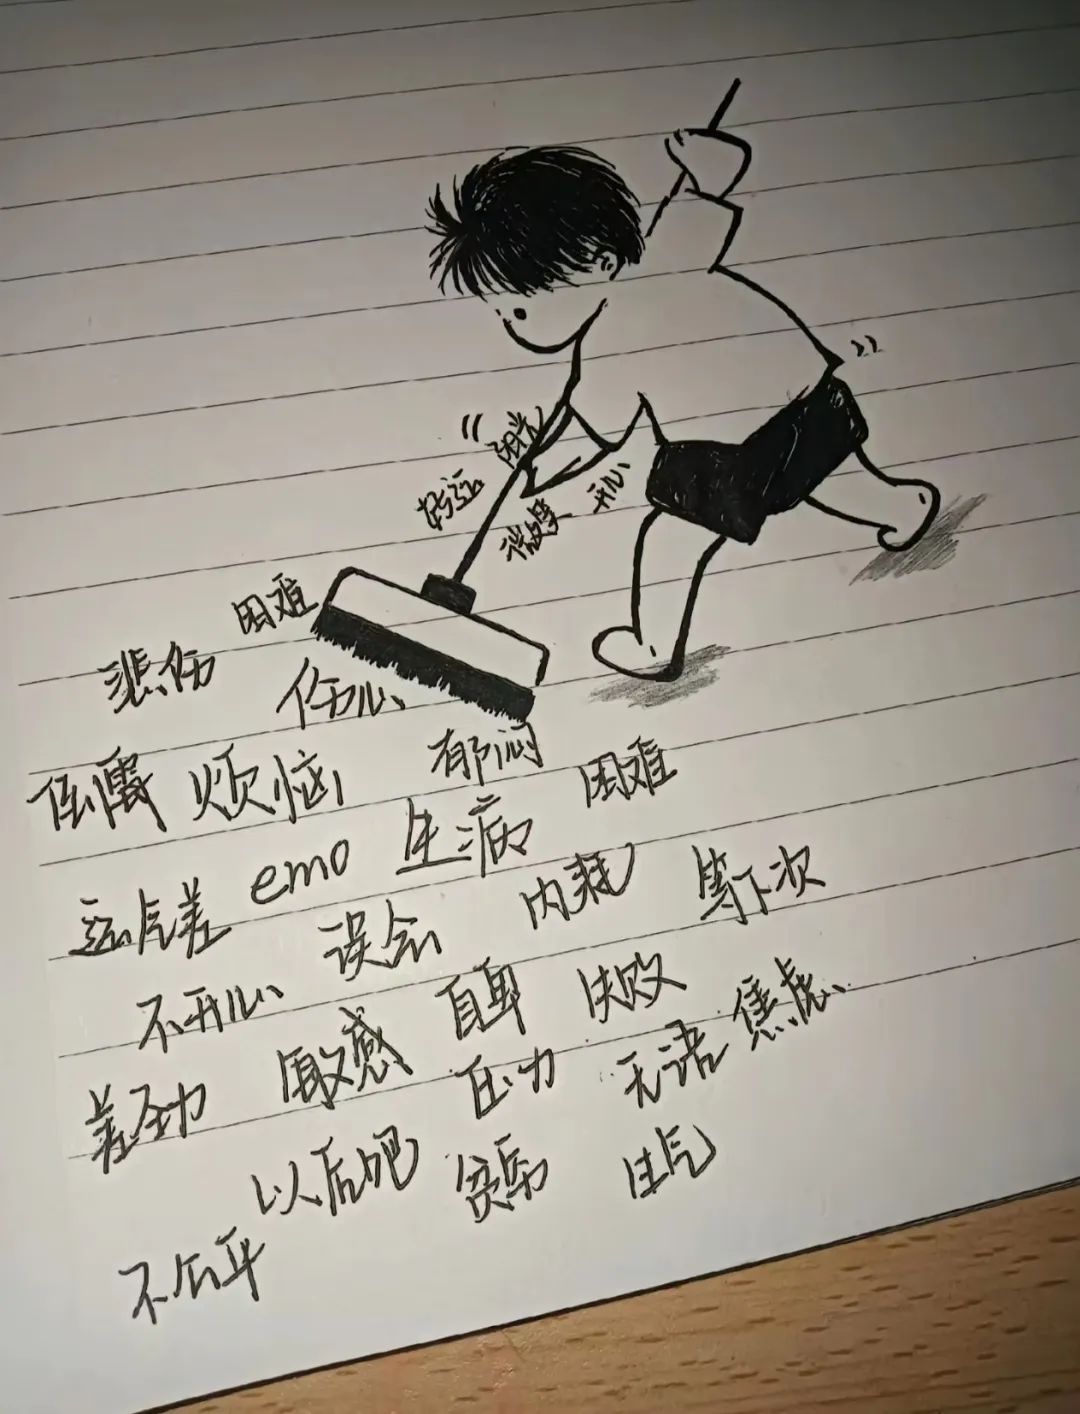 阳光
好运
微笑 开心
困难
悲伤 伤心
倒霉 烦恼 郁闷 困难
运气差 emo 生病
不开心 误会 内耗 等下次
差劲 敏感 自卑 失败
压力 无语 焦虑
以后吧 贫穷 生气
不公平